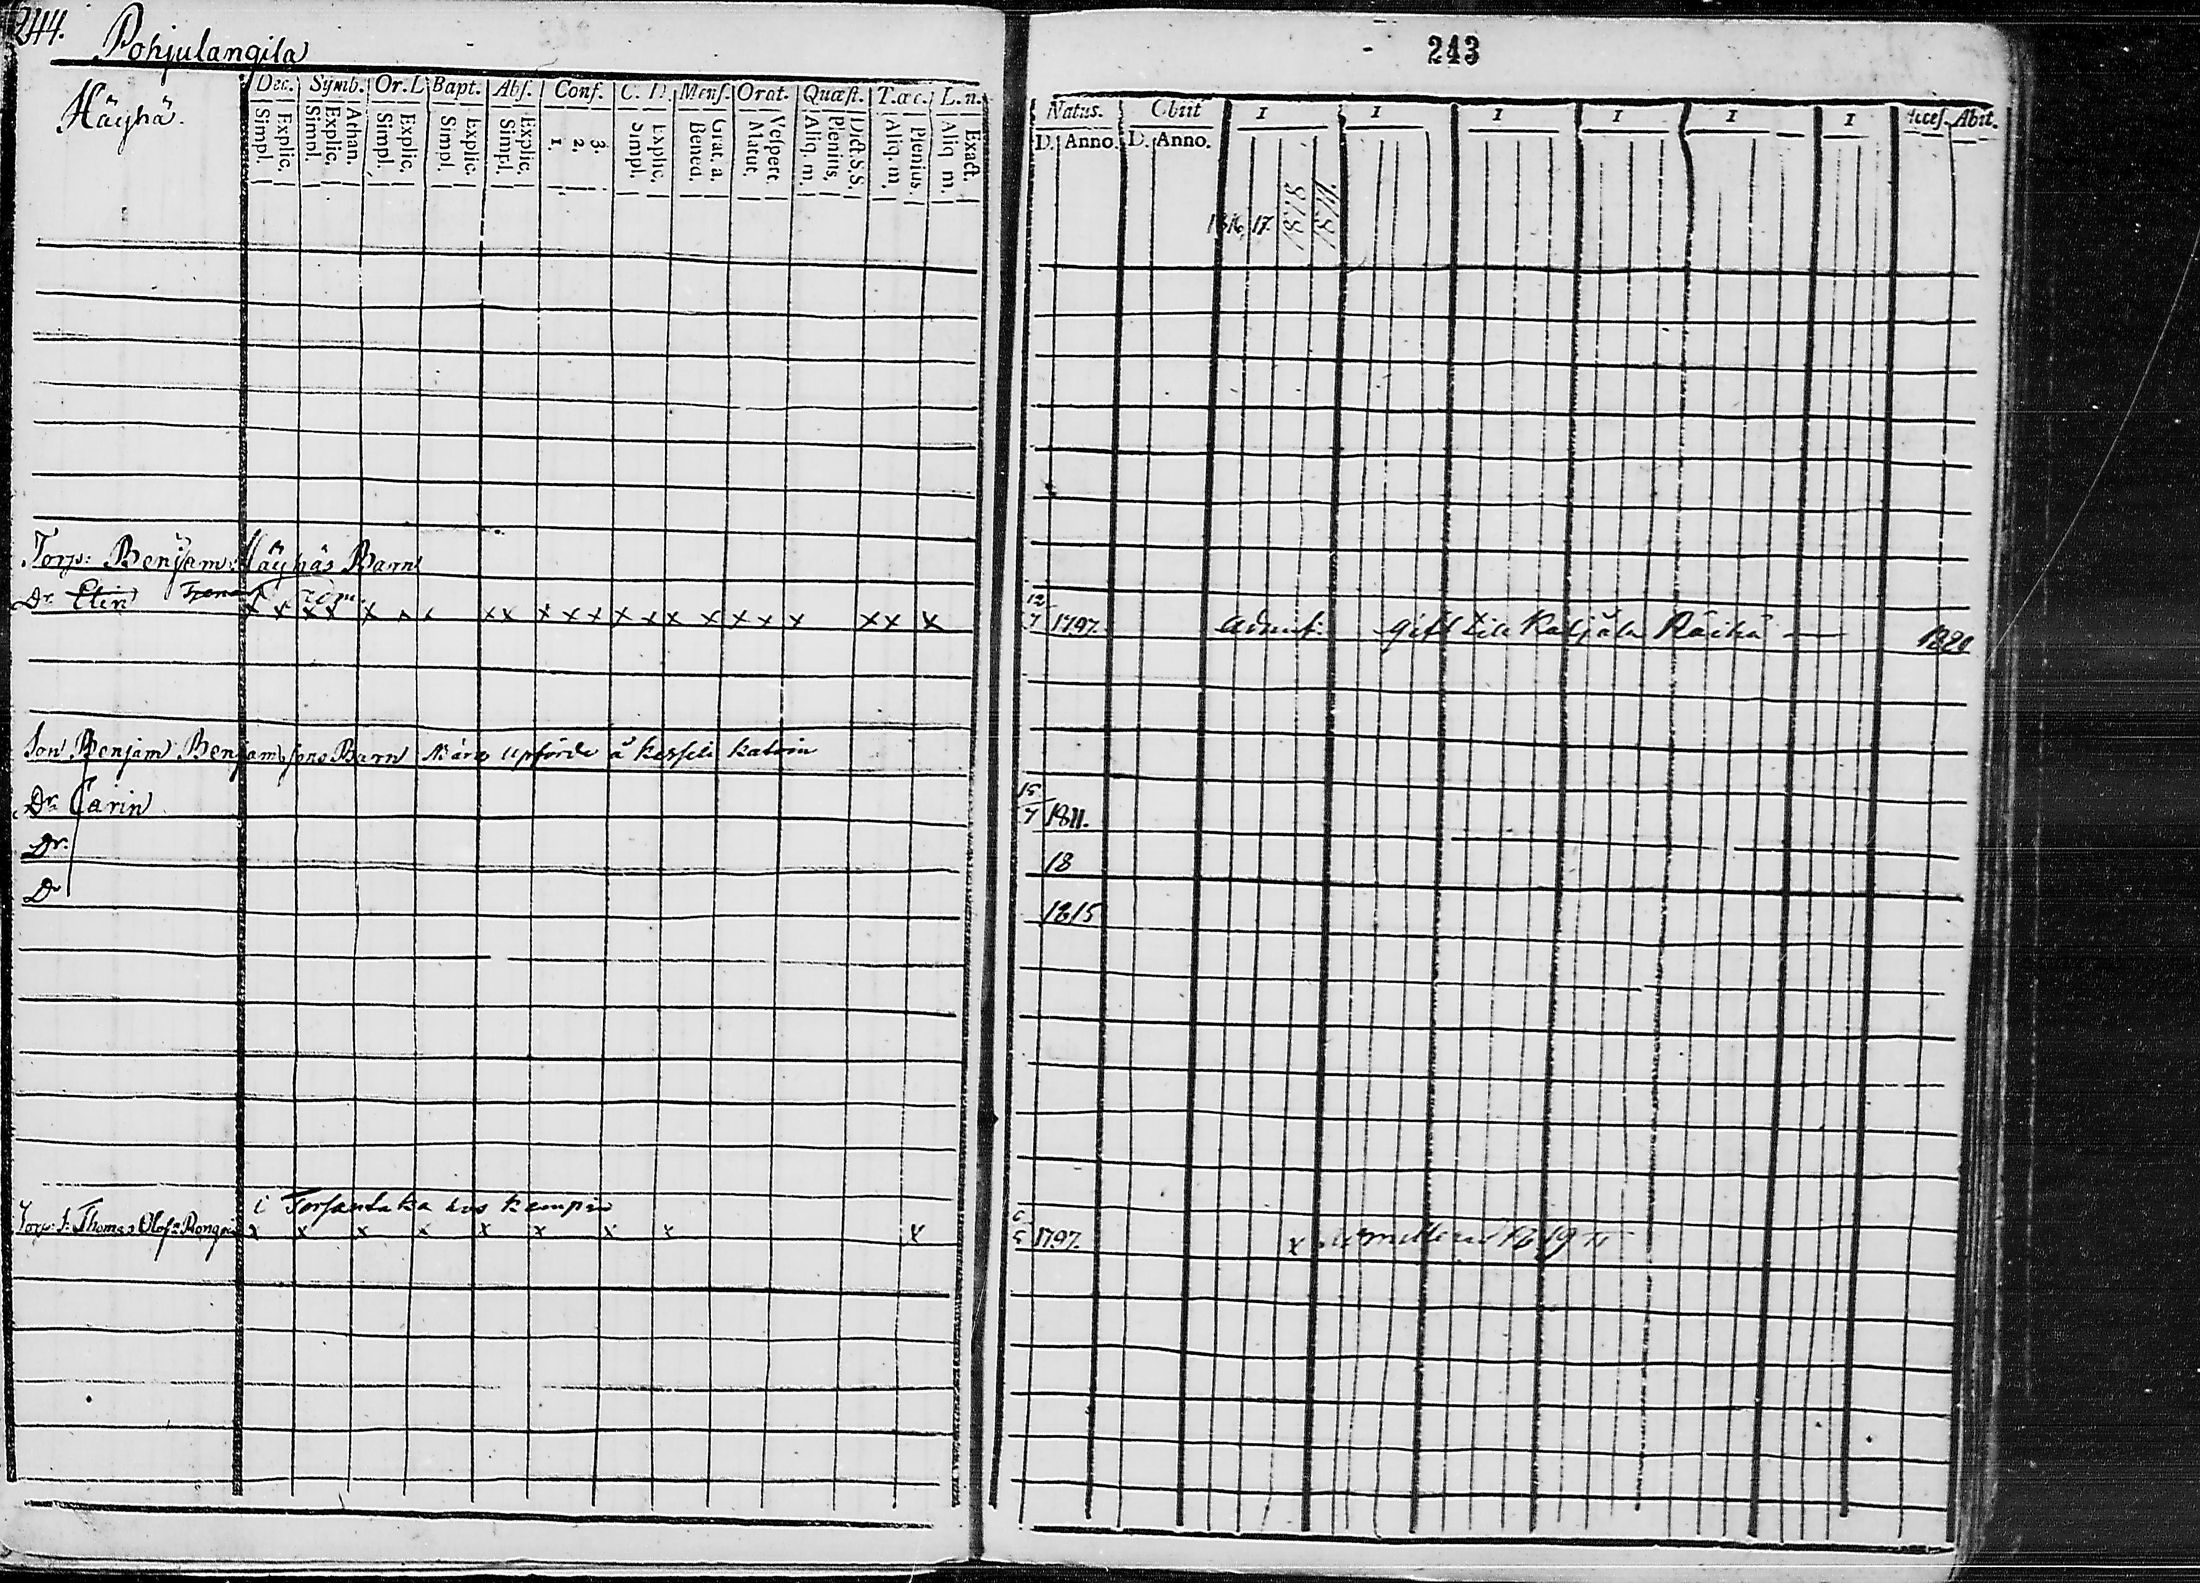 244.
Pohjulangila
Häyhä.
Dec. Symb. Or. L Bapt. Abs. Conf. C. D. Mens. Orat. Quæst. T.œc. L. n.
Simpl. Explic. Simpl. Explic. Athan. Simpl. Explic. Simpl. Explic. Simpl. Explic. 1. 2. 3. Simpl. Explic. Bened. Grat. a. Matut. Vespert. Aliq. m. Plenius. Dict. S.S. Aliq. m. Plenius. Aliq m. Exact.
Torp: Benjam: Häyhäs Barn
Dr. Elin
x x x x x x x x x x x x x x x x x x x x x x
Son Benjam Benjamssons Barn äro upförde å kesseli
Dr. Carin
Dr.
Dr
i Torsansaka hos kempin
Torp. s. Thomas Olofs Rongain x x x x x x x x x
243
Natus. Obiit 1 1 1 1 1 1 Acces. Abit.
D. Anno. D. Anno.
1816, 17. 1818 1819
12/7 1797. admit. gift till Kaljala Räihä — 1820
15/7 1811.
18
1815
6/5 1797. x